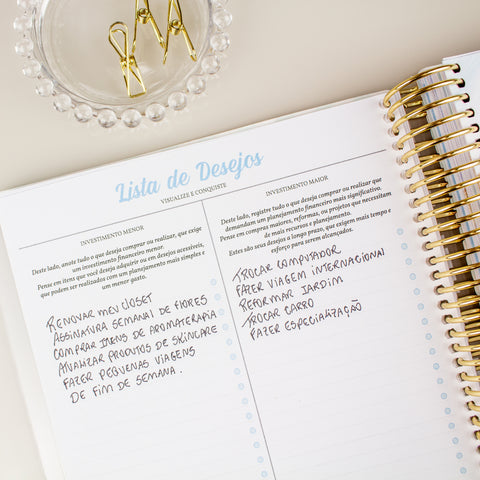 Lista de Desejos
VISUALIZE E CONQUISTE
INVESTIMENTO MENOR
Deste lado, anote tudo o que deseja comprar ou realizar, que exige
um investimento financeiro menor.
Pense em itens que você deseja adquirir ou em desejos acessíveis,
que podem ser realizados com um planejamento mais simples e
um menor gasto.
RENOVAR MEU CLOSET
ASSINATURA SEMANAL DE FLORES
COMPRAR ITENS DE AROMATERAPIA
ATUALIZAR PRODUTOS DE SKINCARE
FAZER PEQUENAS VIAGENS
DE FIM DE SEMANA.
INVESTIMENTO MAIOR
Deste lado, registre tudo o que deseja comprar ou realizar que
demandam um planejamento financeiro mais significativo.
Pense em compras maiores, reformas, ou projetos que necessitam
de mais recursos e planejamento.
Estes são seus desejos a longo prazo, que exigem mais tempo e
esforço para serem alcançados.
TROCAR COMPUTADOR
FAZER VIAGEM INTERNACIONAL
REFORMAR JARDIM
TROCAR CARRO
FAZER ESPECIALIZAÇÃO